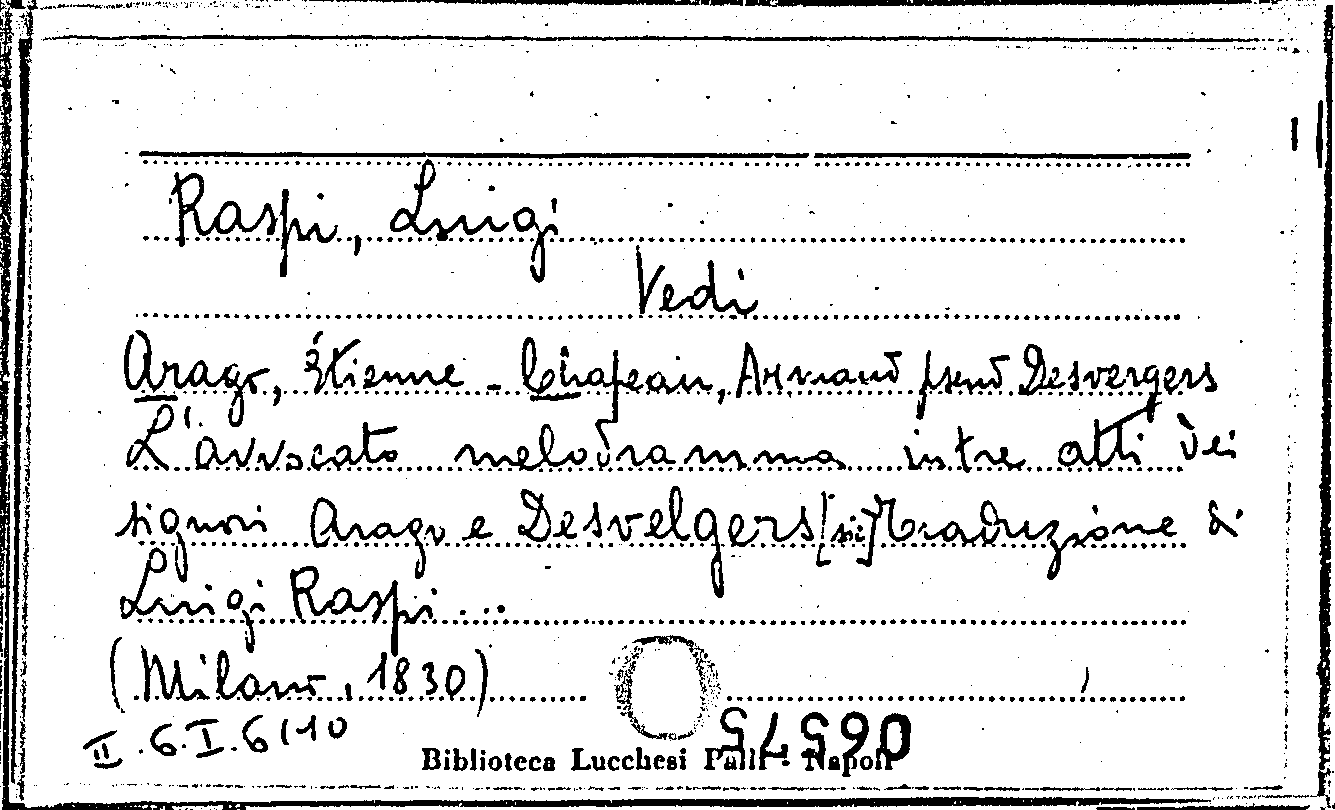 Raspi, Luigi
Vedi
Arago, Étienne - Chapeau, Armand pseud Desvergers
L'avvocato melodramma in tre atti dei
signori Arago e Desvelgers [sic] Traduzione di
Luigi Raspi ...
(Milano, 1830)
II.6.I.6/10
06575
Biblioteca Lucchesi Palli - Napoli